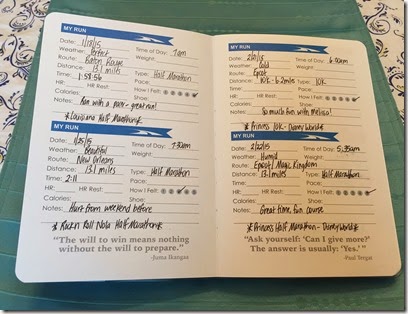 MY RUN
Date: 1/18/15
Weather: Perfect Time of Day: 7am
Route: Baton Rouge
Distance: 13.1 miles Type: Half Marathon
Time: 1:58:56 Pace:
HR: HR Rest: How I Felt:
Calories: Shoe:
Notes: Ran with a pacer - great run!
*Louisiana Half Marathon*
MY RUN
Date: 1/25/15
Weather: Beautiful Time of Day: 7:32am
Route: New Orleans
Distance: 13.1 miles Type: Half Marathon
Time: 2:11 Pace:
HR: HR Rest: How I Felt:
Calories: Shoe:
Notes: Hurt from weekend before
*Rock n Roll Nola Half Marathon*
"The will to win means nothing
without the will to prepare."
-Juma Ikangaa
MY RUN
Date:
Weather: Cold Time of Day:
Route: Epcot
Distance: 10K - 6.2 miles Type: 10K
Time: Pace:
HR: HR Rest: How I Felt:
Calories: Shoe:
Notes: So much fun with Melissa!
*Princess 10K - Disney World*
MY RUN
Date: 2/22/15
Weather: Humid Time of Day: 5:35am
Route: Epcot/Magic Kingdom
Distance: 13.1 miles Type: Half Marathon
Time: Pace:
HR: HR Rest: How I Felt:
Calories: Shoe:
Notes: Great time, fun course
*Princess Half Marathon - Disney World*
"Ask yourself: 'Can I give more?'
The answer is usually: 'Yes.'"
-Paul Tergat